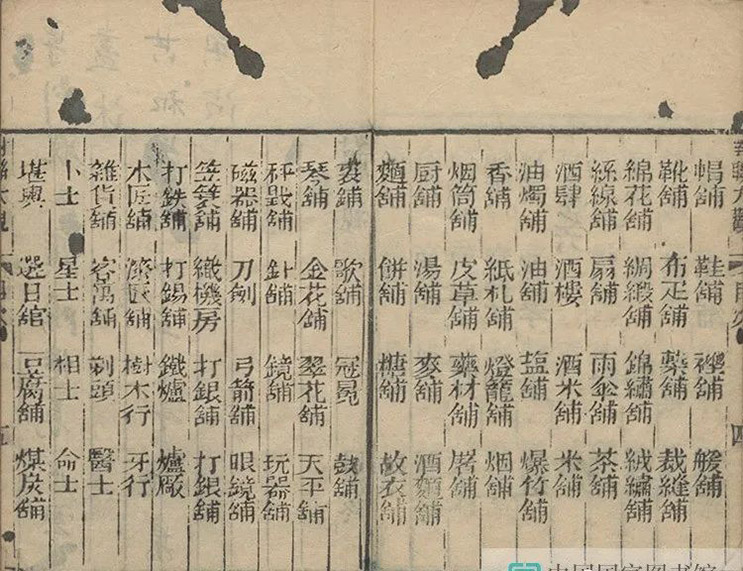 帽舖 鞋舖 襪舖 緞舖
靴舖 布疋舖 藥舖 裁縫舖
綿花舖 綢緞舖 錦繡舖 絨繡舖
絲線舖 扇舖 雨傘舖 茶舖
酒肆 酒樓 酒米舖 米舖
油燭舖 油舖 塩舖 爆竹舖
香舖 紙札舖 燈籠舖 烟舖
烟筒舖 皮草舖 藥材舖 屠舖
厨舖 湯舖 麥舖 酒麵舖
麵舖 餅舖 糖舖 故衣舖
歌舖 冠冕 鼓舖
琴舖 金花舖 翠花舖 天平舖
秤戥舖 針舖 鏡舖 玩器舖
磁器舖 刀劍 弓箭舖 眼鏡舖
織機房 打銀舖 打銀舖
打鉄舖 打錫舖 鐵爐 爐厰
木匠舖 樹木行 牙行
雜貨舖 客寓舖 剃頭 醫士
卜士 星士 相士 命士
堪輿 選日舘 豆腐舖 煤炭舖
四
五
中国国家图书馆